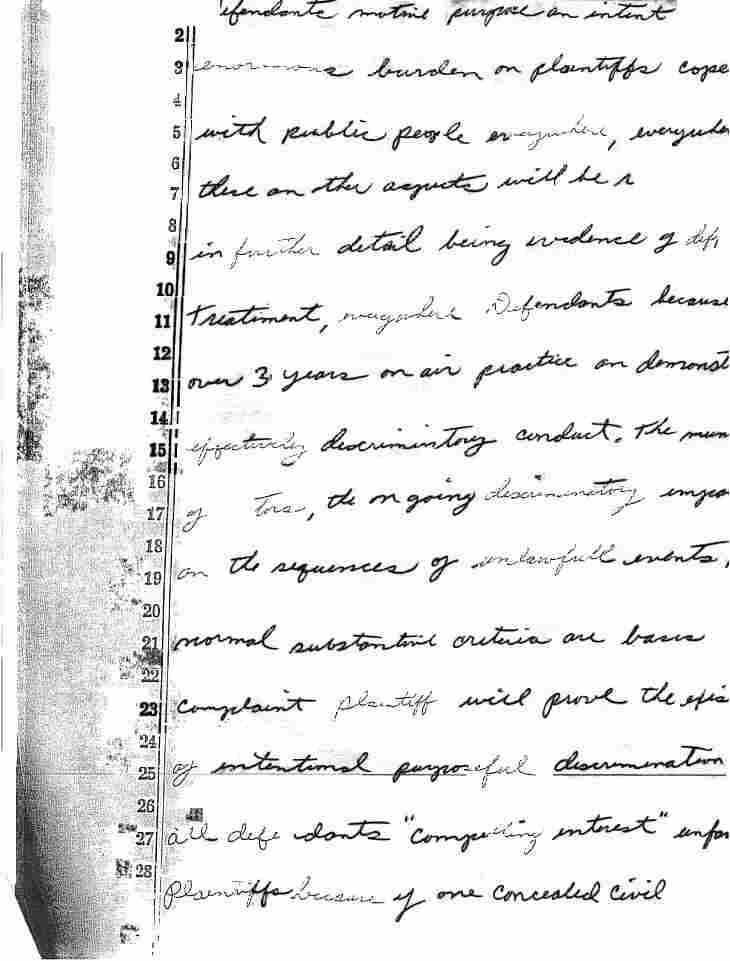 efendants motive purpose an intent
2
3 enormous burden on plaintiffs cope
4
5 with public people everywhere, everywhe
6
7 these an other aspects will be r
8
9 in further detail being evidence of def
10
11 Treatiment, everywhere Defendants because
12
13 over 3 years on air practice an demonst
14
15 effectively discrimintory conduct. The mun
16
17 of tors, the on going discriminatory impa
18
19 on the sequences of unlawfull events,
20
21 normal substantive criteria are bases
22
23 Complaint plaintiff will prove the exis
24
25 of intentional purposeful discrimination
26
27 all defe dants "compelling interest" unfa
28
Plaintiffs because of one concealed Civil